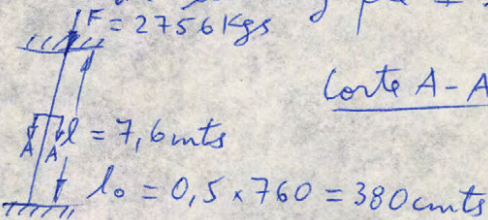 F = 2756 Kgs
Corte A-A
A A l = 7,6 mts
lo = 0,5 x 760 = 380 cmts